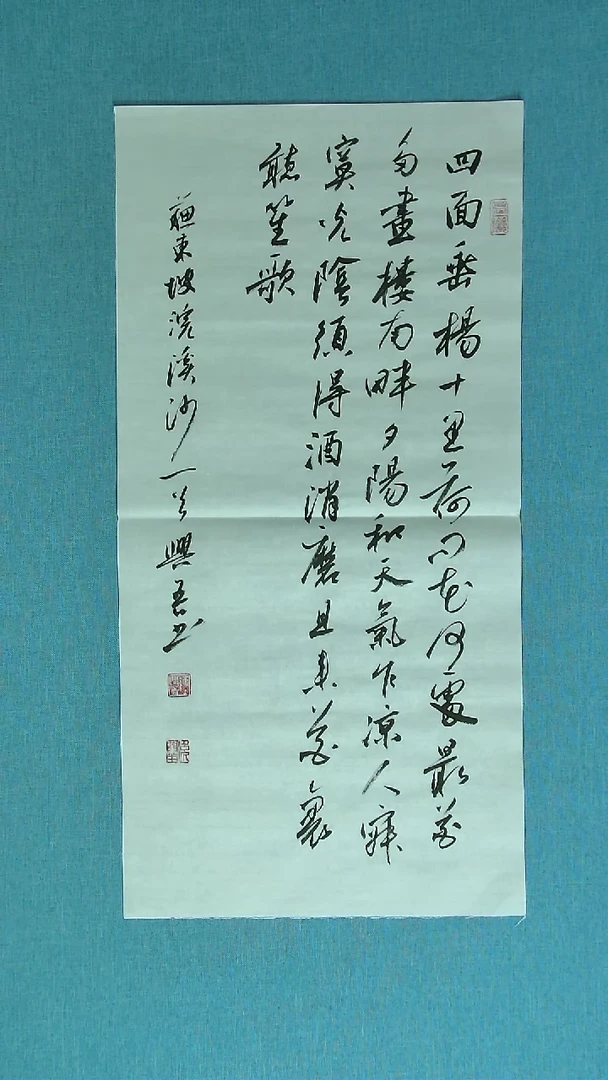 四面垂楊十里荷问何處最花
多畫樓南畔夕陽和天氣乍涼人寂
寞光陰須得酒消磨且来花裏
聽笙歌
蘇東坡浣溪沙一首興吾书